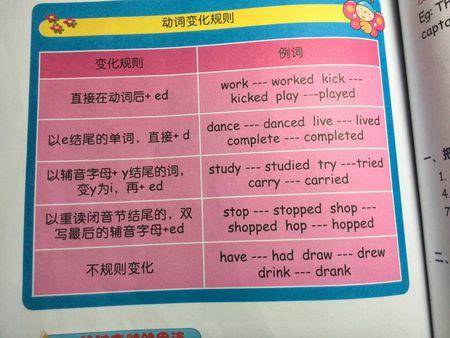 动词变化规则
变化规则
例词
直接在动词后+ ed
work --- worked kick ---
kicked play ---played
以e结尾的单词，直接+ d
dance --- danced live --- lived
complete --- completed
以辅音字母+ y结尾的词，
变y为i，再+ ed
study --- studied try ---tried
carry --- carried
以重读闭音节结尾的，双
写最后的辅音字母+ed
stop --- stopped shop ---
shopped hop --- hopped
不规则变化
have --- had draw --- drew
drink --- drank
Eg: Th
capta
一、把
1.
4.
7.
二、